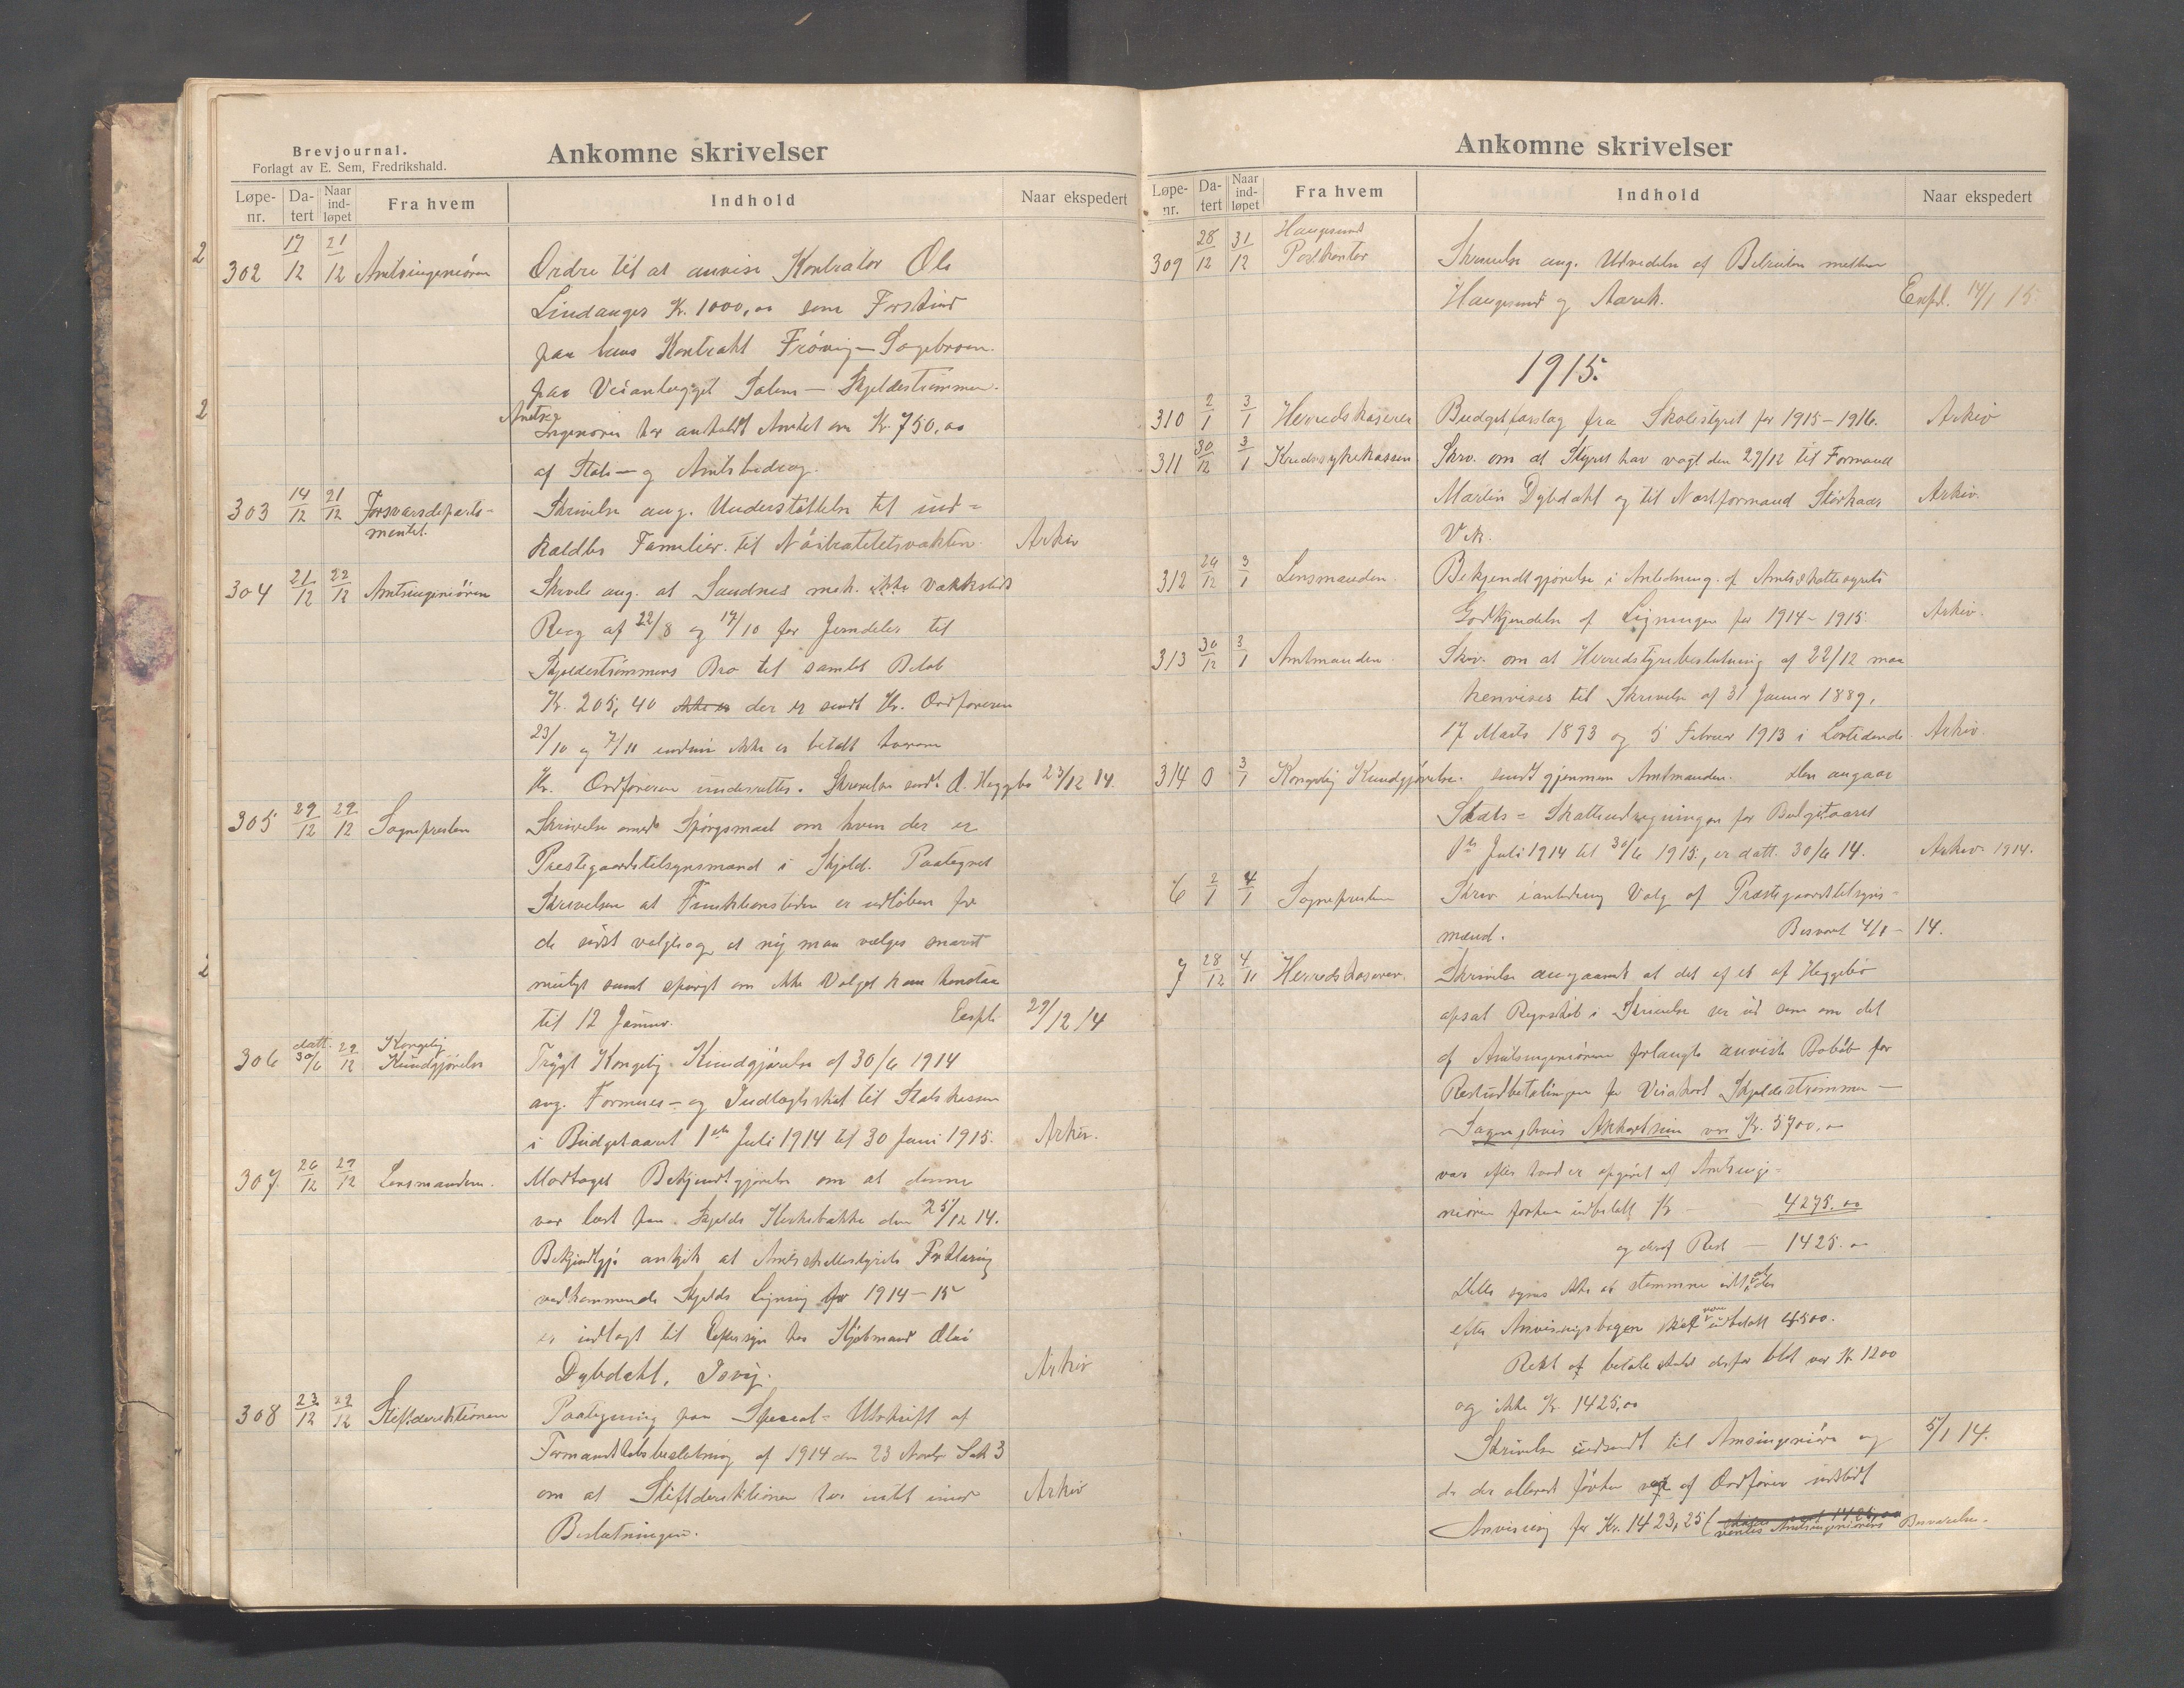 Brevjournal.
Forlagt av E. Sem, Fredrikshald.
Ankomne skrivelser
Løpe-nr. Da-tert Naar ind-løpet Fra hvem Indhold Naar ekspedert
302 17/12 21/12 Amtsingeniören Ordre til at anvise Kontratör Ole
Lindanger Kr. 1000,00 som Forskud
paa hans Kontrakt Frövig - Sagebroen
paa Veianlægget Salen - Skjeldestrømmen.
Amtsingeniören har anholdt Amtet om Kr. 750,00
af Stats- og Amtsbidrag.
303 14/12 21/12 Forsvarsdeparte- Skrivelse ang. Understöttelse til ind=
mentet. kaldtes Familier til Nöitralitetsvakten. Arkiv
304 21/12 22/12 Amtsingeniören Skrivels ang. at Sandnes mek. Værksteds
Regg af 22/8 og 17/10 for Jerndeler til
Skjeldeströmmens Bro til samlet Belöb
Kr. 205,40 der er sendt Hr. Ordföreren
23/10 og 7/11 endnu ikke er betalt hvorom
Hr. Ordföreren underrettes. Skrivelse sendt A. Heggebö 23/12 14.
305 29/12 29/12 Sognepresten Skrivelse med Spörgsmaal om hvem der er
Prestegaardstilsynsmænd i Skjold. Paategnet
Skrivelsen at Funktionstiden er udlöben for
de sidst valgte og at ny maa vælges snarest
muligt samt spurgt om ikke Valget kan henstaa
til 12 Januar. Exspd. 29/12 14
306 datt. 30/6 29/12 Kongelig Kundgjörelse Trygt Kongelig Kundgjörelse af 30/6 1914
ang. Formues- og Indtægtsskat til Statskassen
i Budgetaaret 1ste Juli 1914 til 30 Juni 1915. Arkiv.
307 26/12 29/12 Lensmanden. Modtaget Bekjendtgjörelse om at denne
var læst paa Skjolds Kirkebakke den 25/12 14.
Bekjendtgj. angik at Amtsskattestyrets Erklæring
vedkommende Skjolds Ligning for 1914-15
er indlagt til Eftersyn hos Kjöbmand Olai
Dybdahl, Isvig. Arkiv
308 23/12 29/12 Stiftsdirektionen Paategning paa Special-Utskrift af
Formandskabsbeslutning af 1914 den 23 Novbr Sak 3
om at Stiftsdirektionen har intet imod Arkiv
Beslutningen.
Ankomne skrivelser
Løpe-nr. Da-tert Naar ind-løpet Fra hvem Indhold Naar ekspedert
309 28/12 31/12 Haugesund Postkontor Skrivelse ang. Utvidelse af Bilruten mellem
Haugesund og Aarek. Exspd. 14/1 15
1915.
310 2/1 3/1 Herredskaserer Budgetforslag fra Skolestyret for 1915-1916. Arkiv
311 30/12 3/1 Kredssykekassen Skriv. om at Styret har valgt den 29/12 til Formand
Martin Dybdahl og til Næstformand Störkaas Arkiv.
Vik.
312 26/12 3/1 Lensmanden. Bekjendtgjörelse i Anledning af Amtsskattestyrets
Godkjendelse af Ligningen for 1914-1915. Arkiv.
313 30/12 3/1 Amtmanden. Skriv. om at Herredstyrebeslutning af 22/12 maa
henvises til Skrivelse af 31 Januar 1889,
17 Marts 1893 og 5 Februar 1913 i Lovtidende. Arkiv.
314 0 3/1 Kongelig Kundgjörelse. sendt gjennem Amtmanden. Den angaar
Stats=Skatteudregningen for Budgetaaret
1ste Juli 1914 til 30/6 1915, er datt. 30/6 14. Arkiv. 1914.
6 2/1 4/1 Sognepresten Skriv. i anledning Valg af Præstegaardstilsyns-
mænd. Besvart 4/1 - 14.
7 28/12 4/1 Herredskaserer. Skrivelse angaaende at det af af Heggebö
opsat Regnskab i Skrivelse ser ud som om det
af Amtsingeniören forlangte anviste Belöb for
Restudbetalingen for Veiakkord Skjeldeströmmen -
Sagen, hvis Akkordsum var Kr. 5700,00
var efter hvad er opgivet af Amtsinge-
niören forhen udbetalt Kr - 4275.00
og deraf Rest - 1425.00
Dette synes ikke at stemme idet der
efter Anvisningsbogen skal være udbetalt 4500.
Rest at betale skulde derfor blot var Kr. 1200
og ikke Kr. 1425,00
Skrivelse indsendt til Amtsingeniören og 5/1 14.
da der allerede förhen var af Ordförer utstedt
Anvisning for Kr. 1423,25 ( ventes Amtsingeniörens Besvarelse.